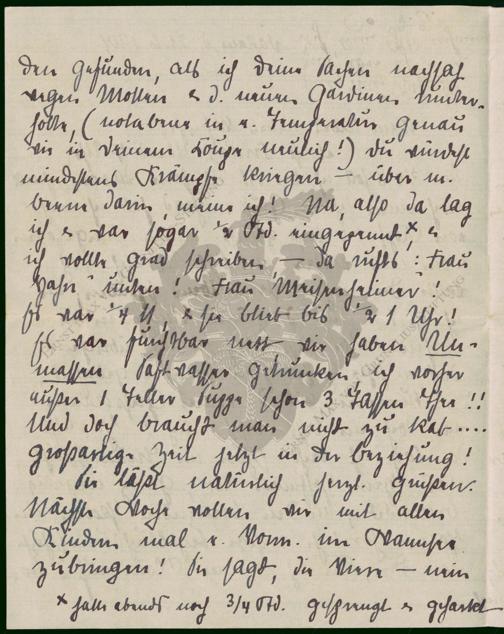 den gefunden, als ich deine Sachen nachsah
wegen Motten & d. neuen Gardinen runter-
holte, (notabene in e. Temperatur genau
wie in deinem Koupe neulich!) Du würdest
mindestens Krämpfe kriegen – über m.
beem darin, meine ich! Na, also da lag
ich & war sogar ½ Std. eingepennt x &
ich wollte grad schreiben – da rufts: Frau
Hahn" unten! Frau Meisenheimer!
Es war ¼ 11, & sie blieb bis ½ 1 Uhr!
Es war furchtbar nett wir haben Un-
massen Saftwasser getrunken, ich vorher
außer 1 Teller Suppe schon 3 Tassen Thee!!
Und doch braucht man nicht zu Kab....
großartige Zeit jetzt in der beziehung!
Sie läßt natürlich herzl. grüßen.
Nächste Woche wollen wir mit allen
Kindern mal e. Vorm. im Wannsee
zubringen! Sie sagt, die Vier – mein
x hatte abends noch 3/4 Std. gesprengt & geharkt